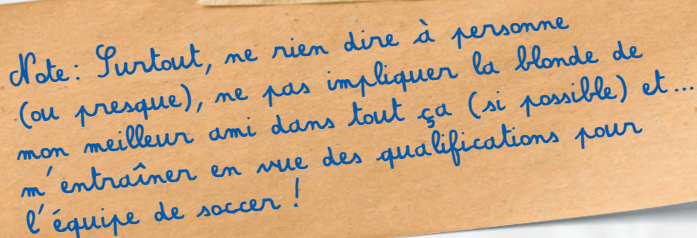 Note: Surtout, ne rien dire à personne
(ou presque), ne pas impliquer la blonde de
mon meilleur ami dans tout ça (si possible) et...
m'entraîner en vue des qualifications pour
l'équipe de soccer !